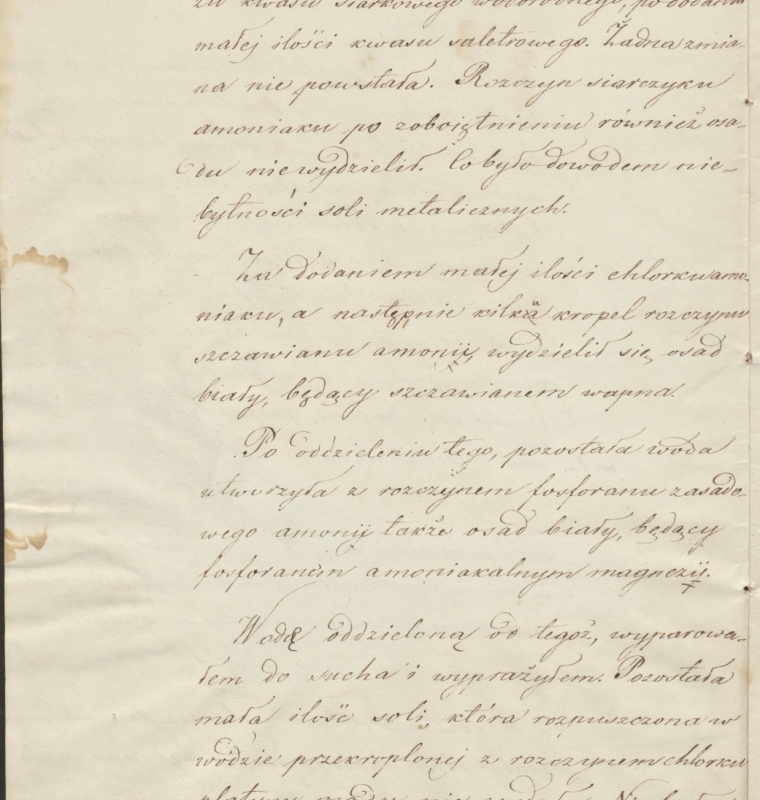 zu kwasu siarkowego wodorodnego, po dodaniu
małej ilości kwasu saletrowego. Żadna zmia-
na nie powstała. Rozczyn siarczyku
amoniaku po zobojętnieniu również osa-
du niewydzielił. Co było dowodem nie-
bytności soli metalicznych.
Za dodaniem małej ilości chlorku amo-
niaku, a następnie kilka kropel rozczynu
szczawianu amonii, wydzielił się osad
biały, będący szczawianem wapna.
Po oddzieleniu tego, pozostała woda
utworzyła z rozczynem fosforanu zasado-
wego amonij także osad biały, będący
fosforanem amoniakalnym magnezii.
Wodę oddzieloną od tegoż, wyparowa-
łem do sucha i wyprażyłem. Pozostała
mała ilość soli, która rozpuszczona w
wodzie przekroplonej z rozczynem chlorku